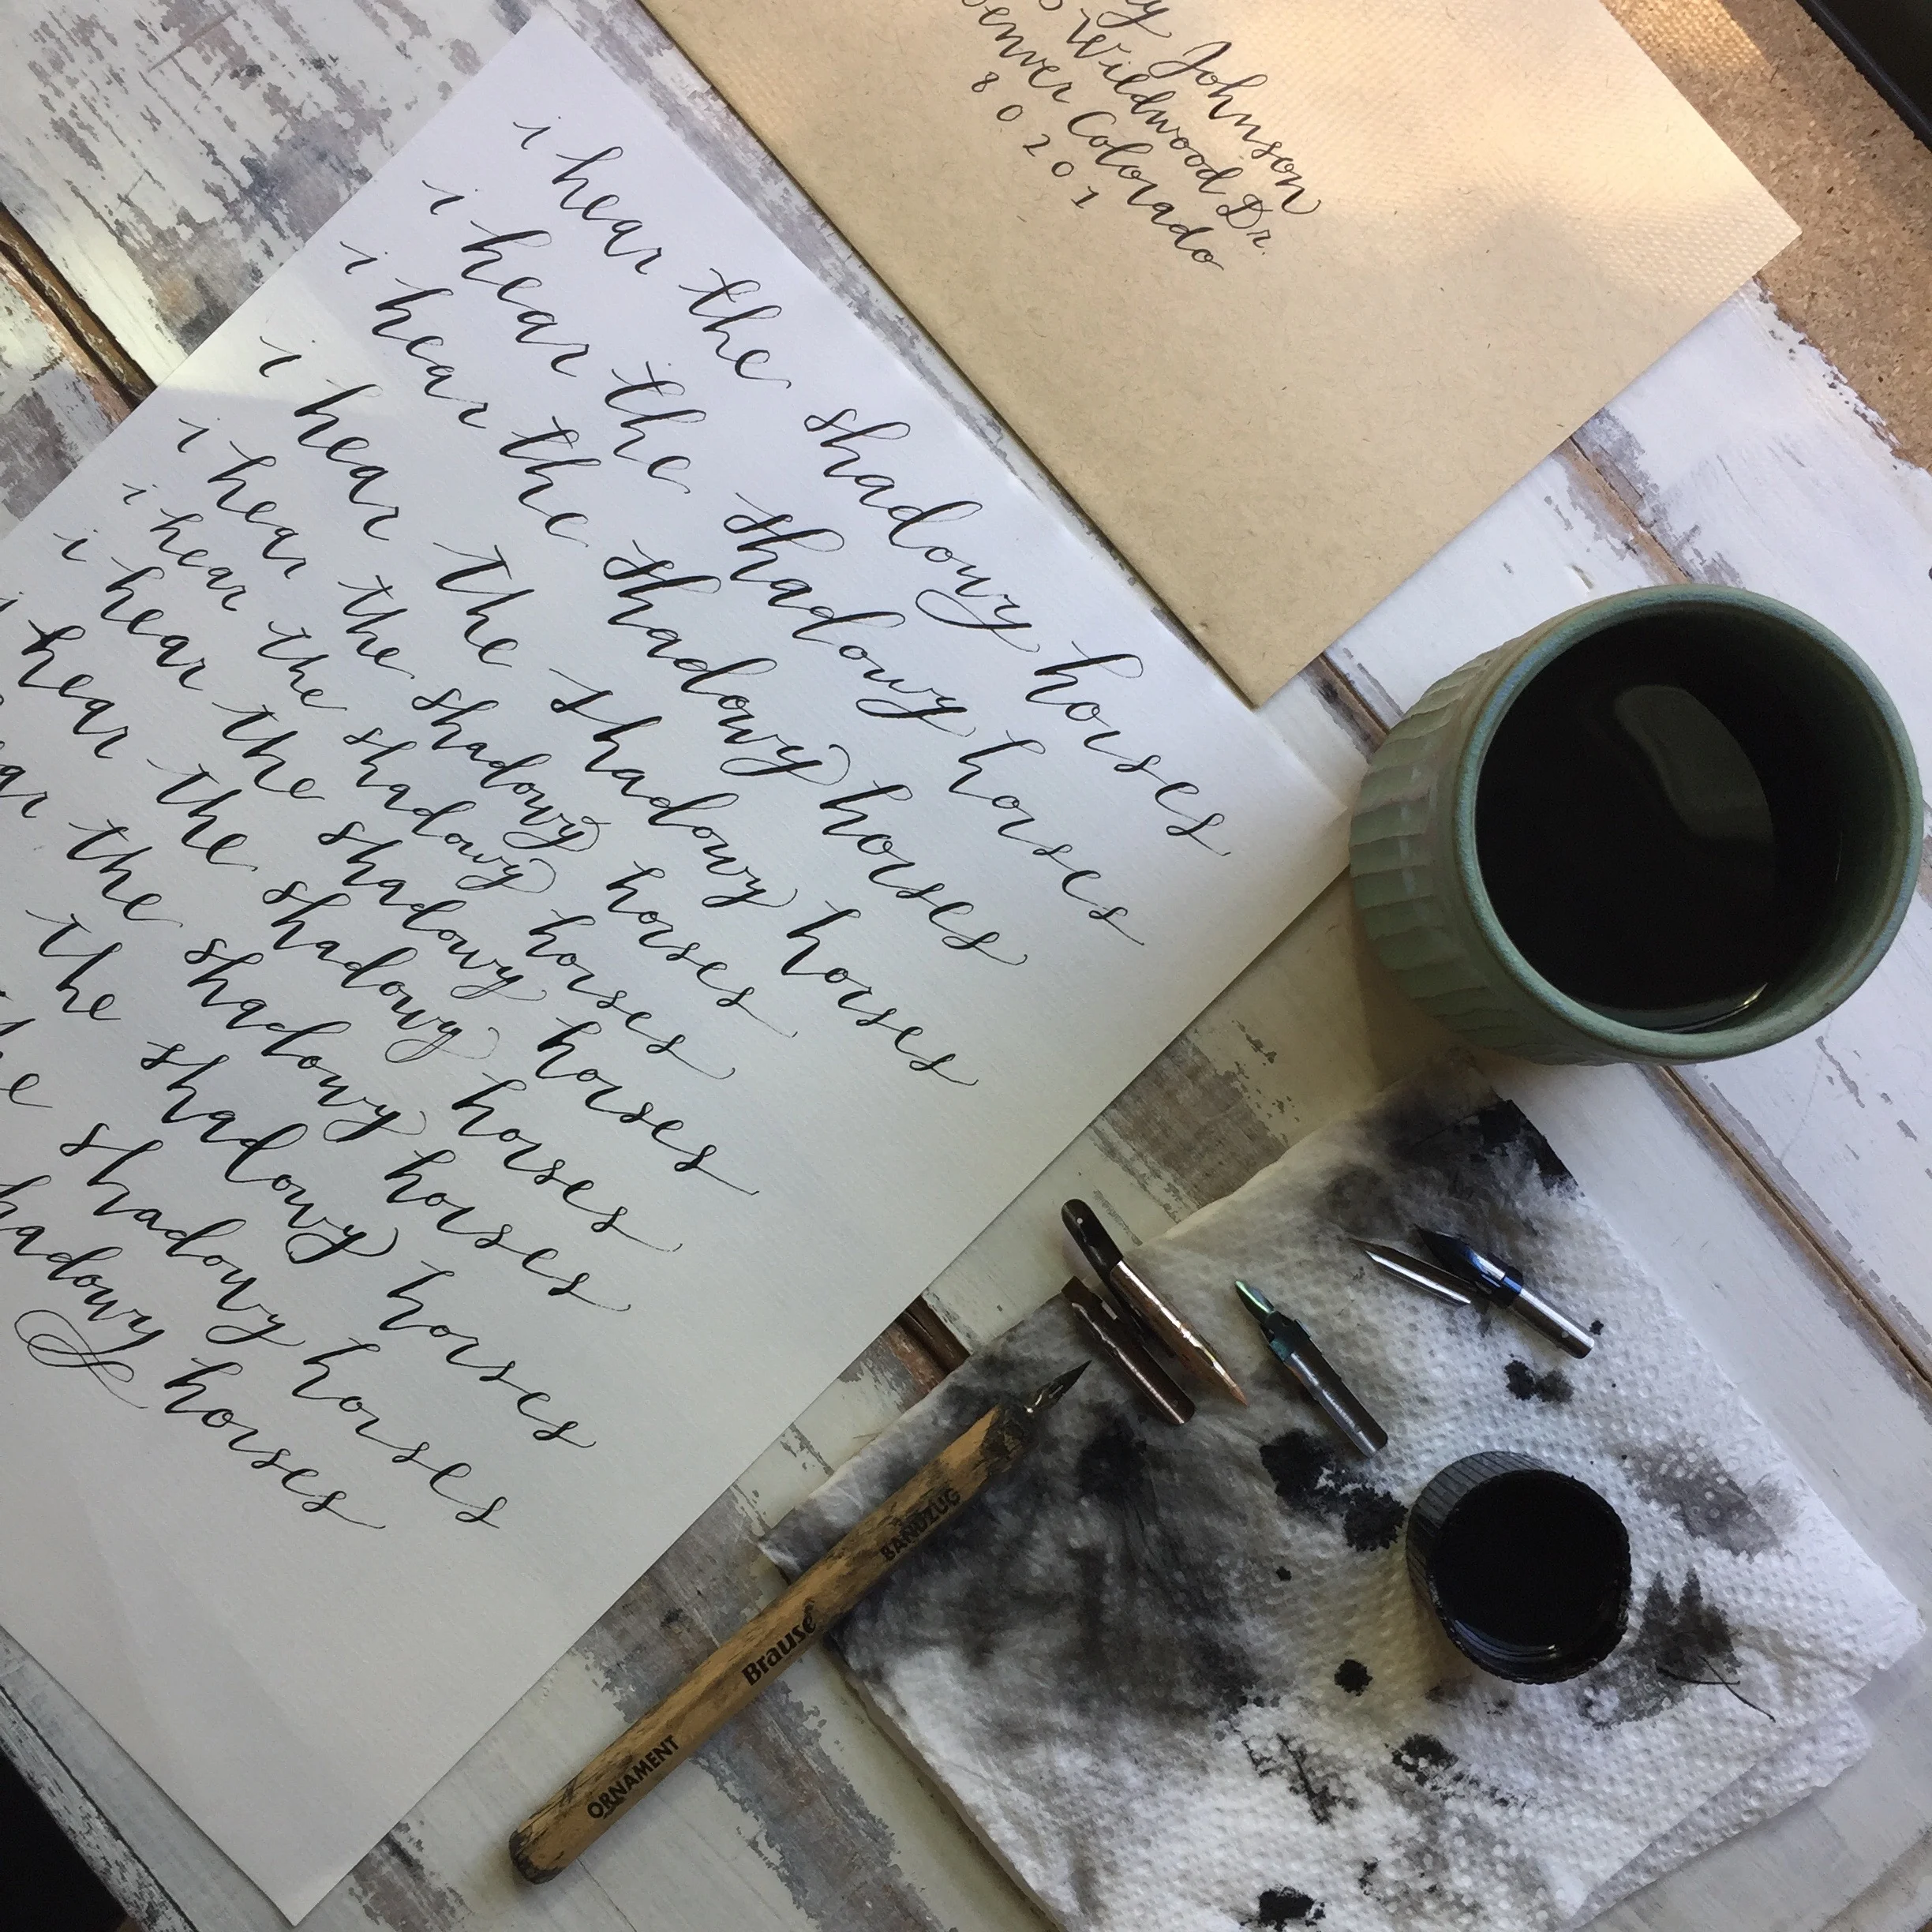 i hear the shadowy horses
i hear the shadowy horses
i hear the shadowy horses
i hear the shadowy horses
i hear the shadowy horses
i hear the shadowy horses
i hear the shadowy horses
i hear the shadowy horses
ar the shadowy horses
the shadowy horses
he shadowy horses
hadowy horses
y Johnson
Wildwood Dr.
enver Colorado
80201
ORNAMENT Brause BANDZUG